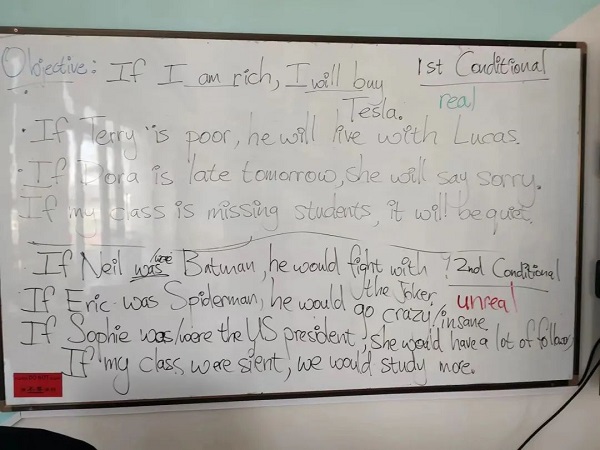 Objective: If I am rich, I will buy Tesla.
1st Conditional
real
· If Terry is poor, he will live with Lucas.
· If Dora is late tomorrow, she will say sorry.
If my class is missing students, it will be quiet.
· If Neil was/were Batman, he would fight with the Joker.
2nd Conditional
unreal
If Eric was Spiderman, he would go crazy/insane
If Sophie was/were the US president, she would have a lot of follows
If my class were sient, we would study more.